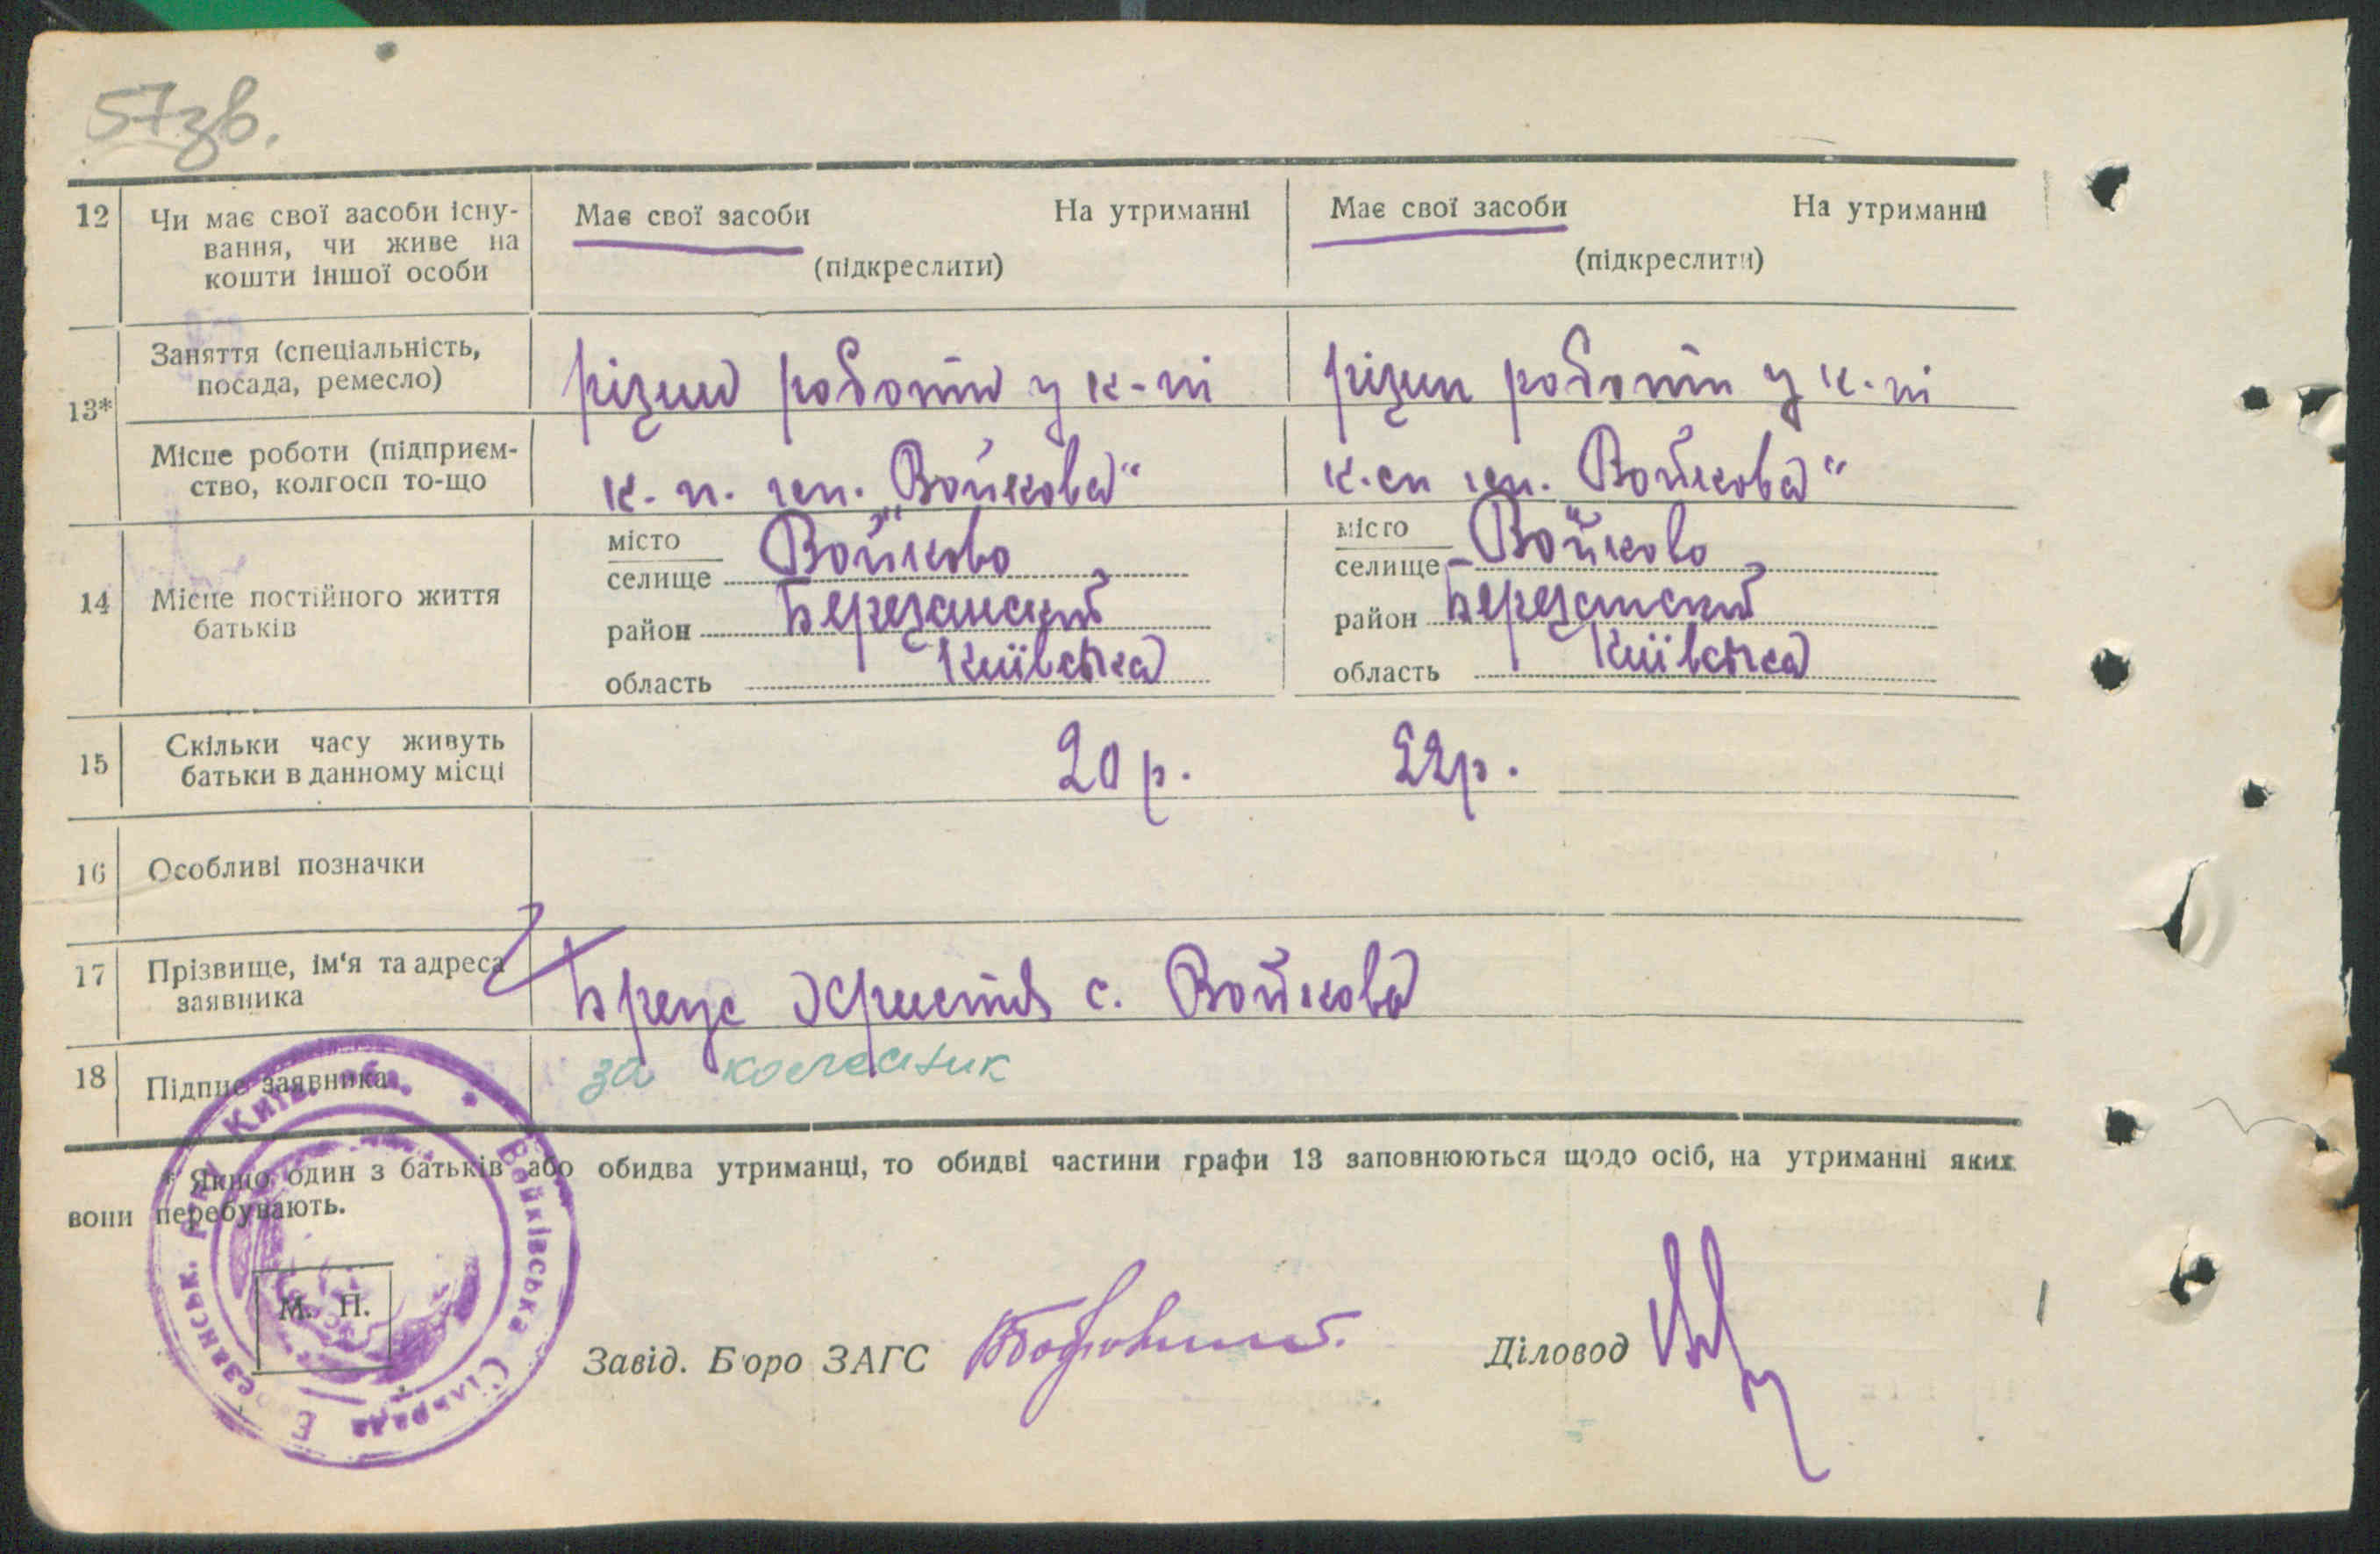 57зв.
12 Чи має свої засоби існу- Має свої засоби На утриманні Має свої засоби На утриманні
вання, чи живе на
кошти іншої особи (підкреслити) (підкреслити)
13* Заняття (спеціальність,
посада, ремесло) різни роботи у к-пі різни роботи у к-пі
Місце роботи (підприєм-
ство, колгосп то-що к. п. ім. "Войкова" к.сп ім. Войкова"
місто Войково місто Войково
селище селище
14 Місце постійного життя район Березанский район Березанский
батьків
область Київська область Київська
15 Скільки часу живуть
батьки в данному місці 20 р. 22 р.
16 Особливі позначки
17 Прізвище, ім'я та адреса
заявника Бреус Христя с. Войкова
18 Підпис заявника за
* Якщо один з батьків або обидва утриманці, то обидві частини графи 13 заповнюються щодо осіб, на утриманні яких
вони перебувають.
М. П.
Войківська Сільрада
Завід. Бюро ЗАГС Діловод